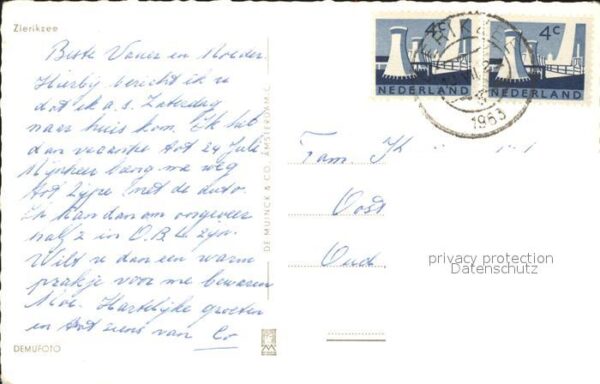 Zierikzee
Beste Vader en Moeder
Hierbij bericht ik u
dat ik a.s. Zaterdag
naar huis kom. Ik heb
dan vacantie tot 24 Juli
Mijnheer brengt me weg
tot Zijpe met de auto.
Ik kan dan om ongeveer
half 2 in O.B. te zijn.
Wilt u dan een warm
prakje voor me bewaren
Moe. Hartelijke groeten
en tot ziens van Co
DEMUFOTO
DE MUINCK & CO. AMSTERDAM-C.
4c
NEDERLAND
4c
NEDERLAND
1963
Fam.
Oost
Oud
privacy protection
Datenschutz